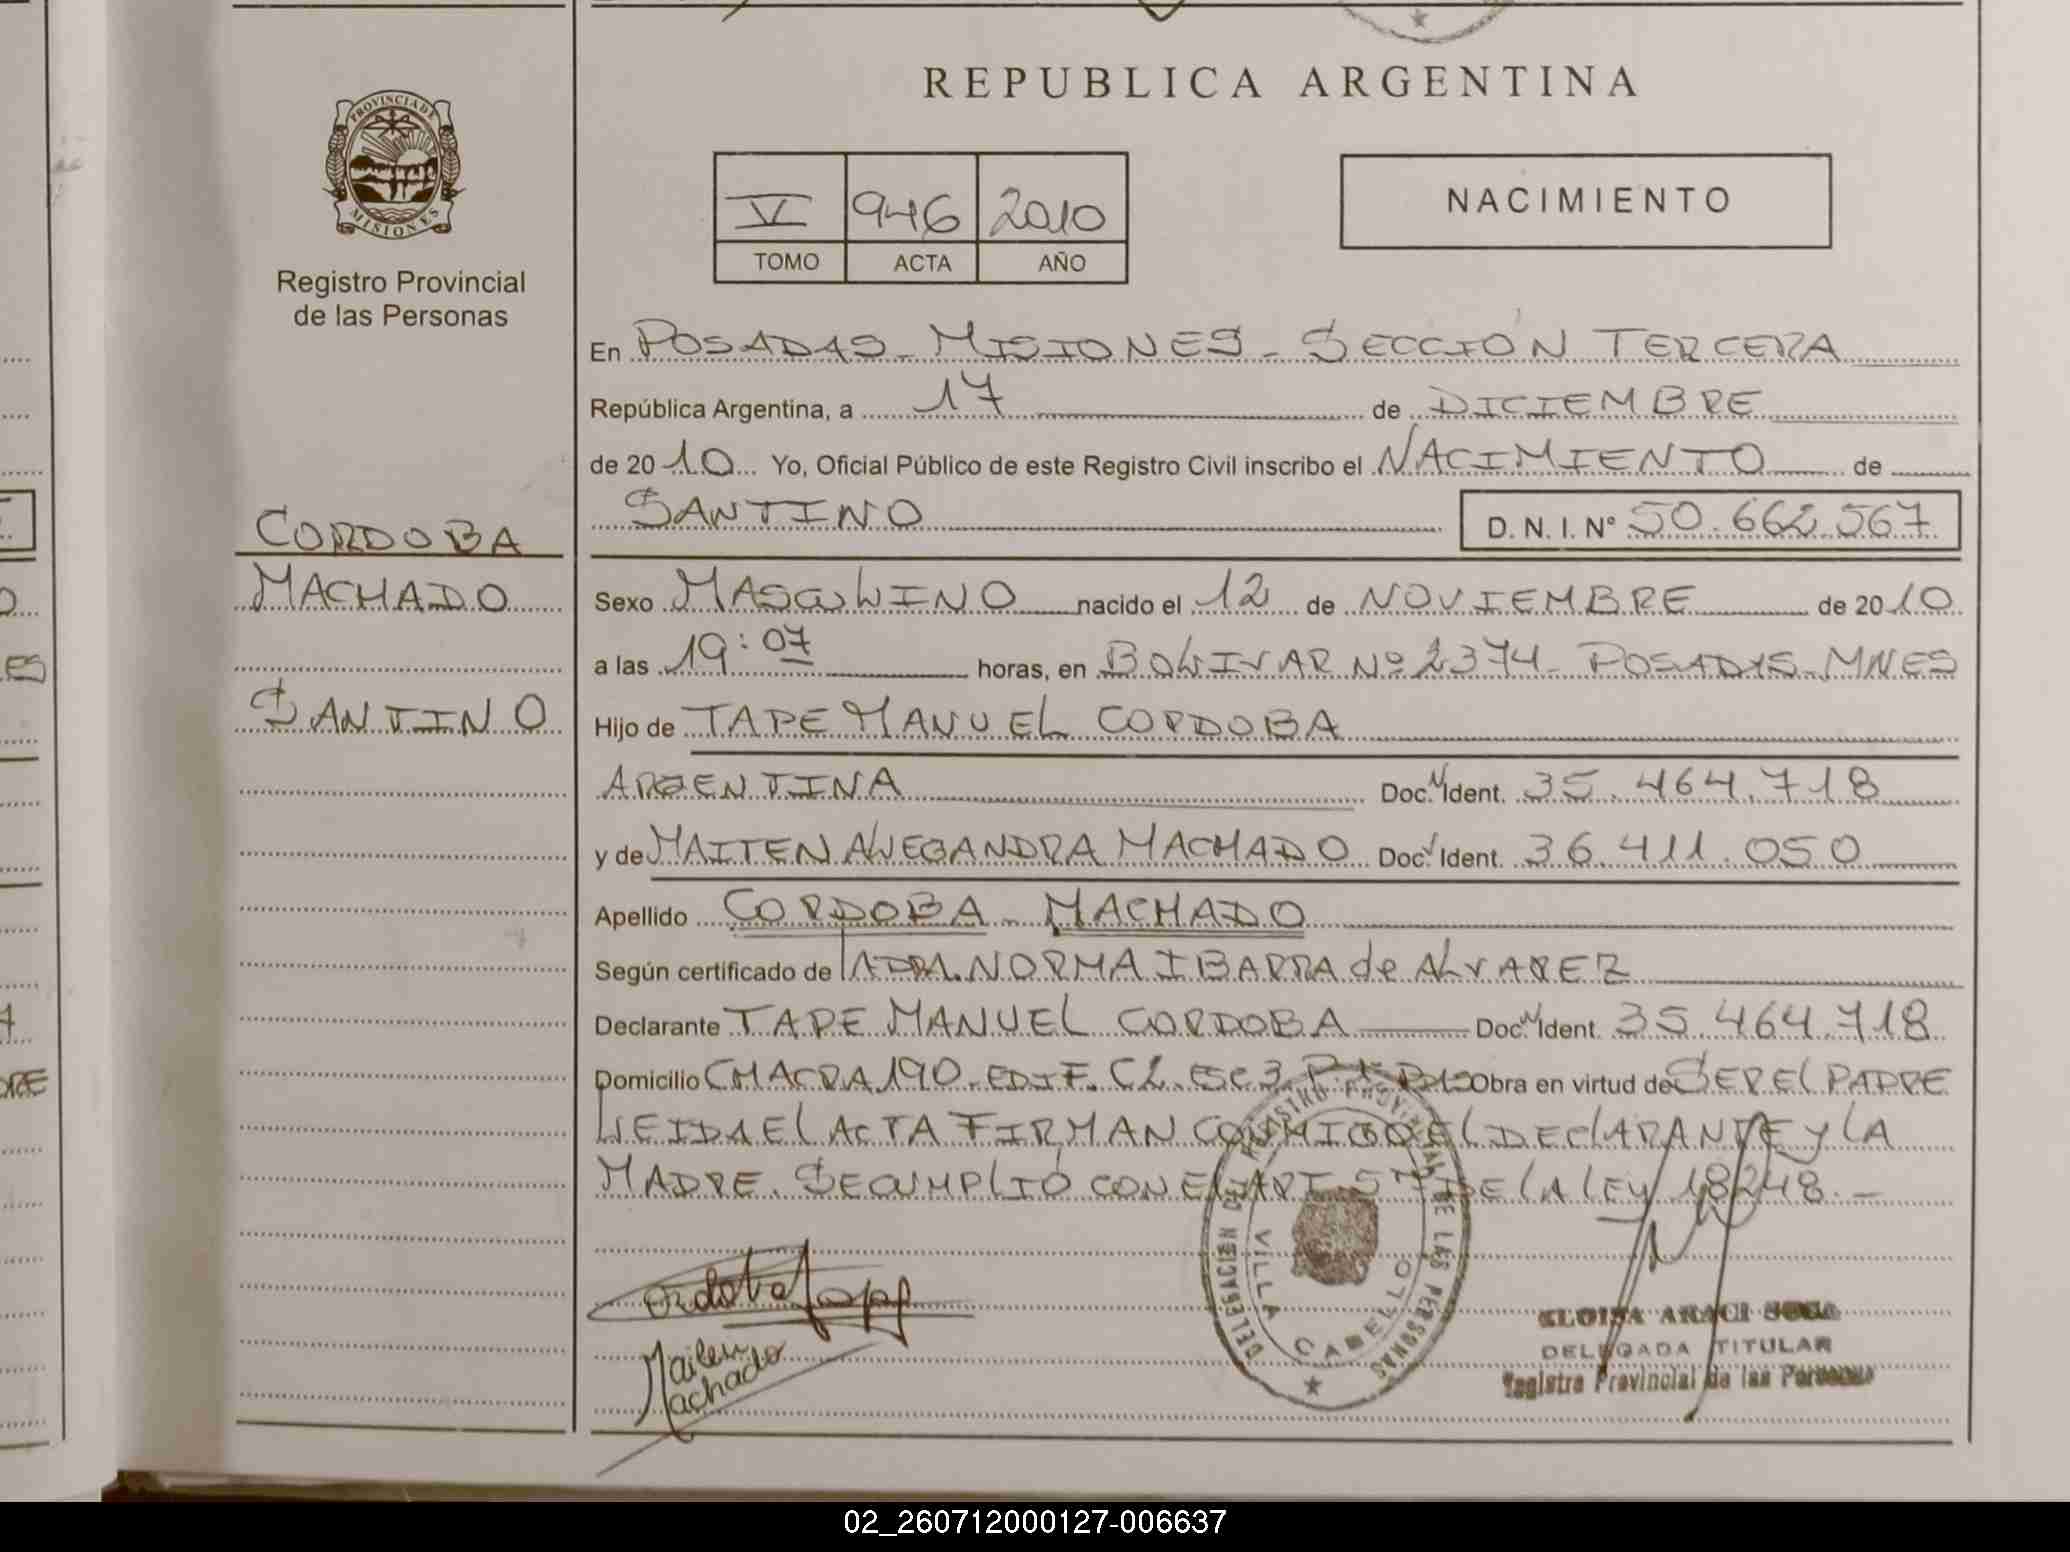 REPUBLICA ARGENTINA
PROVINCIA DE MISIONES
Registro Provincial
de las Personas
V 946 2010
TOMO ACTA AÑO
NACIMIENTO
En POSADAS - MISIONES - SECCIÓN TERCERA
República Argentina, a 17 de DICIEMBRE
de 2010 Yo, Oficial Público de este Registro Civil inscribo el NACIMIENTO de
SANTINO D. N. I. Nº 50.662.567
CORDOBA
MACHADO
SANTINO
Sexo MASCULINO nacido el 12 de NOVIEMBRE de 2010
a las 19:07 horas, en BOLIVAR Nº 2374 - POSADAS - MNES
Hijo de TAPE MANUEL CORDOBA
ARGENTINA Doc. N Ident. 35.464.718
y de ALEJANDRA MACHADO Doc. Ident. 36.411.050
Apellido CORDOBA - MACHADO
Según certificado de NORMA IBARRA de ALVAREZ
Declarante TAPE MANUEL CORDOBA Doc. N Ident. 35.464.718
Domicilio CHACRA 190 - EDIF. C2 - ESC 3 Obra en virtud de SER EL PADRE
LEIDA EL ACTA FIRMAN CONMIGO EL DECLARANTE Y LA
MADRE. SE CUMPLIÓ CON EL ART 57 DE LA LEY 18248. -
DELEGACION DEL REGISTRO PROVINCIAL DE LAS PERSONAS
VILLA CABELLO
Machado
ELOISA ARACI
DELEGADA TITULAR
Registro Provincial de las Personas
02_260712000127-006637